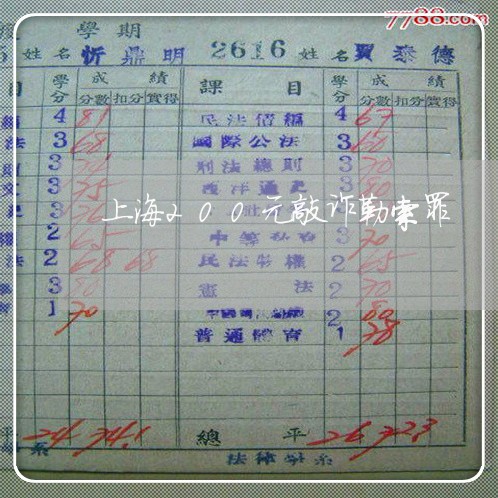 7788.com
學期
姓名 忻鼎明 2616 姓名 賈泰德
目 學分 成績 課目 學分 成績
分數 扣分 實得 分數 扣分 實得
4 81 民法債編 4 67
法 3 68 國際公法 3 60
3 刑法總則 3 70
3 75 西洋通史 3
上海200元敲诈勒索罪
2 65 3 70
法 2 68 68 民法物權 2 65
3 憲法 2 70
1 70 2 80
普通體育 1 78
平 24 74.1 總平 26 72.3
系 法律學系